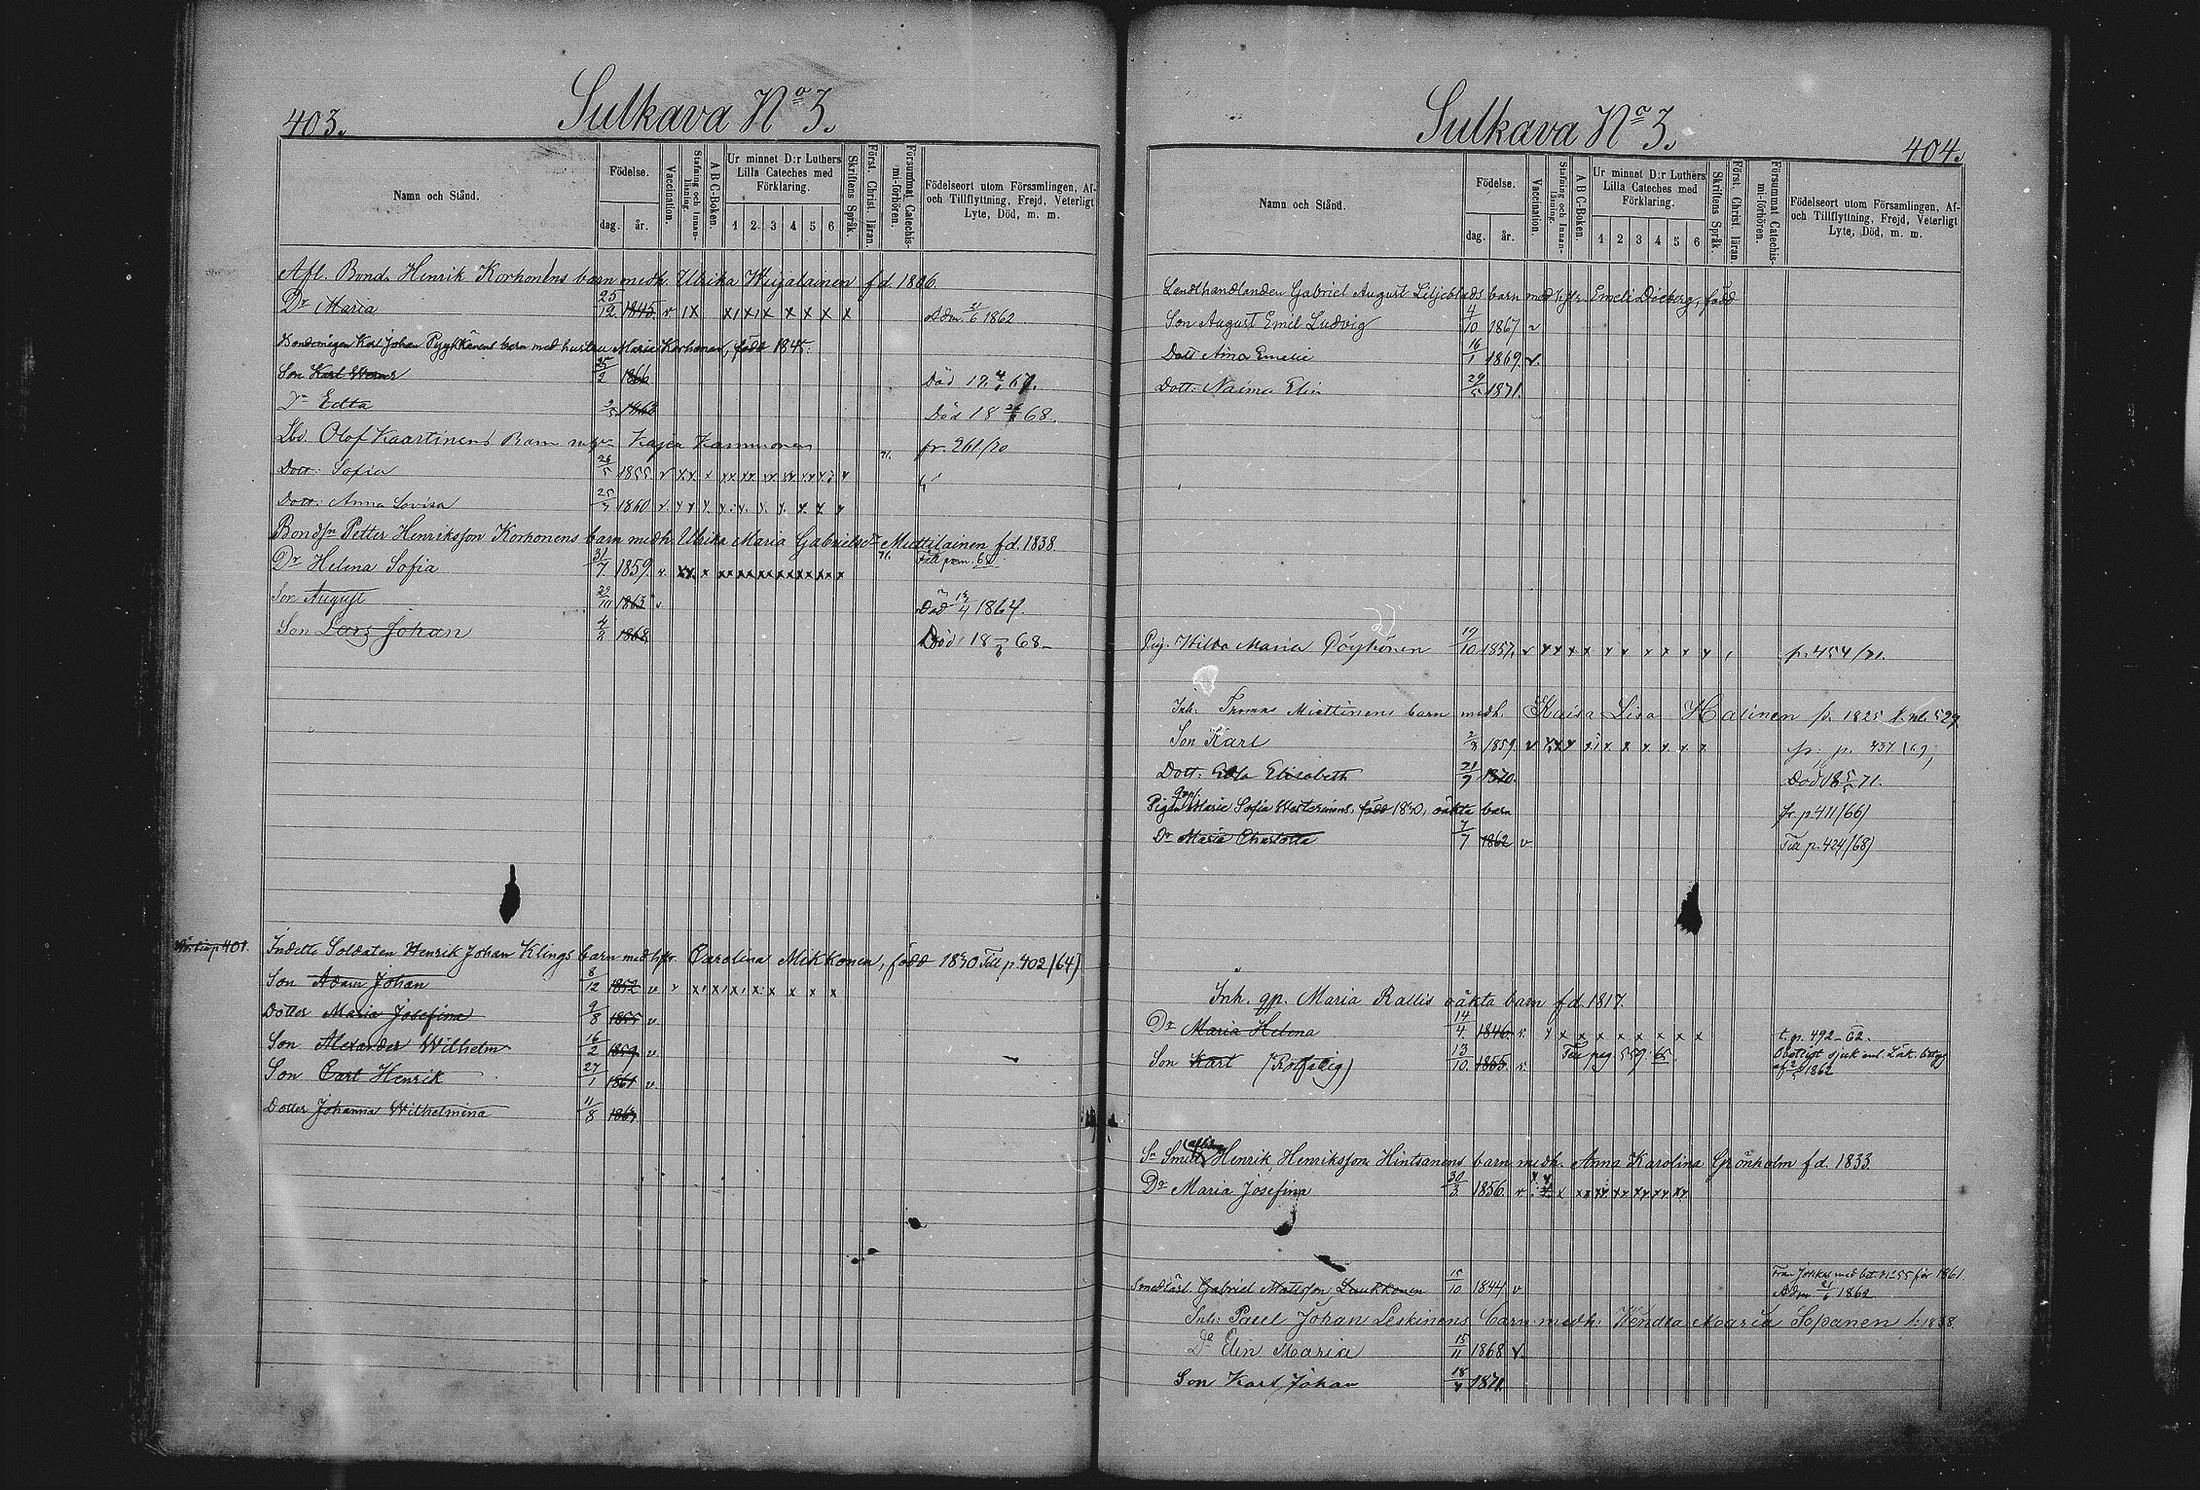 403.
Sulkava No 3.
Namn och Stånd.
Födelse.
dag.
år.
Vaccination.
Stafning och Innanläsning.
A B C-Boken.
Ur minnet D:r Luthers Lilla Cateches med Förklaring.
1 2 3 4 5 6
Skriftens Språk.
Först. Christ. läran.
Försummat Catechismi-förhören.
Födelseort utom Församlingen, Af- och Tillflyttning, Frejd, Veterligt Lyte, Död, m. m.
Afl. Bond. Henrik Korhonens barn medh. Ulrika Wijalainen f d. 1806.
Dr Maria 25/12 1845 v Adm. 1862
Bondemågen Karl Johan Pyykkönens barn med hustru Maria Korhonen, född 1845.
Son Karl 25/2 1866 Död 67.
Dr Edla 1868 Död 18 68.
Lbd. Olof Kaartinens Barn Kajsa Kammonen fr. 261/70
Dott. Sofia 26/5 1855 v
Dott. Anna Lovisa 1860 v
Bondsn Petter Henriksson Korhonens barn medh. Ulrika Maria Gabrielsdr Miettilainen f d. 1838.
Dr Helena Sofia 31/7 1859 v
Son August 1863 v Död 1864.
Son Lars Johan 1868 Död 18 68
401.
Indelte Soldaten Henrik Johan Klings barn med hstr. Carolina Mikkonen, född 1830 Till p. 402/64)
Son Adam Johan 8/12 1852 v
Dotter Maria Josefina 9/8 1855 v
Son Alexander Wilhelm 16/2 1859 v
Son Carl Henrik 27/1 1861 v
Dotter Johanna Wilhelmina 11/8 1864
Sulkava No 3.
404.
Namn och Stånd.
Födelse.
dag.
år.
Vaccination.
Stafning och Innanläsning.
A B C-Boken.
Ur minnet D:r Luthers Lilla Cateches med Förklaring.
1 2 3 4 5 6
Skriftens Språk.
Först. Christ. läran.
Försummat Catechismi-förhören.
Födelseort utom Församlingen, Af- och Tillflyttning, Frejd, Veterligt Lyte, Död, m. m.
Landthandlanden Gabriel August Liljeblads barn med hstr. Emeli Dieberg, född
Son August Emil Ludvig 4/10 1867 v
Dott Aina Emelie 16/1 1869 v.
Dott. Naima Elin 29/5 1871.
Pig. Hilda Maria Pöyhönen 19/10 1857. v p. 454/71.
Inh. Thomas Miettinens barn medh. Kaisa Lisa Halinen f. 1825
Son Karl 1859 v fr. p. 437/69,
Dott. Edla Elisabeth 21/9 1870 Död 18 71.
Pigan Maria Sofia Westerinens, född 1830, oäkta barn fr. p 411/66)
Dr Maria Charlotta 7/7 1862 v Till p. 424/68)
Inh. qp. Maria Rallis oäkta barn f d. 1817.
Dr Maria Helena 14/4. 1846 v t. p. 492-62.
Son Karl (Rotfattig) 13/10. 1855 v Till pag 559. 65. 1862
Henrik Henriksson Hintsanens barn medh. Anna Karolina Grönholm f d. 1833.
Dr Maria Josefina 30/3 1856 v
Smedlärl. Gabriel Mattsson Laukkonen 15/10 1844 v Adm 1862
Inh. Paul Johan Leskinens barn medh. Wendla Maria Sopanen f. 1838.
Dr Elin Maria 15/11 1868 v.
Son Karl Johan 18/4 1871